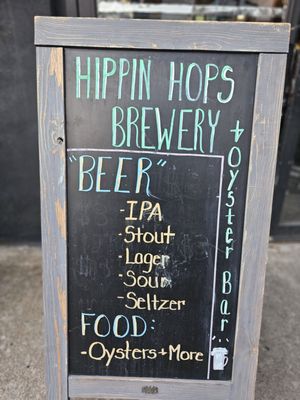 HIPPIN HOPS
BREWERY
+ Oyster Bar
"BEER"
- IPA
- Stout
- Lager
- Sour
- Seltzer
FOOD:
- Oysters + More